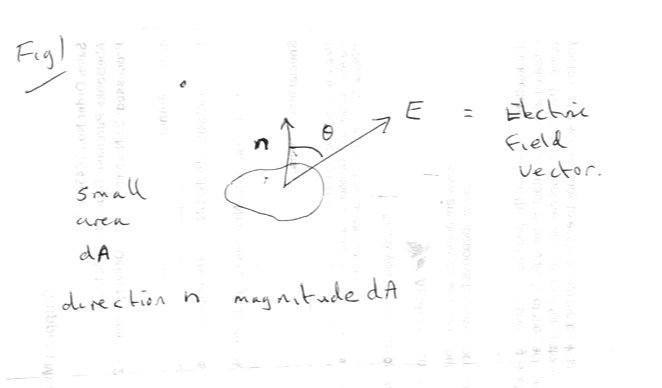 Fig 1
n
θ
E = Electric
Field
Vector.
small
area
dA
direction n magnitude dA